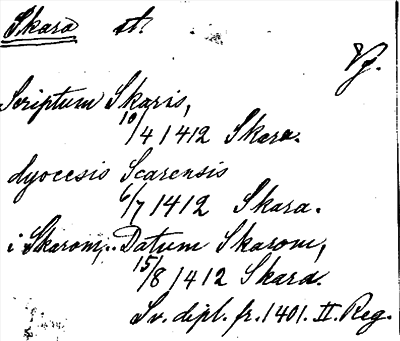 Skara st.
Vg.
Scriptum Skaris,
10/4 1412 Skara.
dyocesis Scarensis
6/7 1412 Skara.
i Skarom, Datum Skarom,
15/8 1412 Skara.
Sv. dipl. fr. 1401. II. Reg.